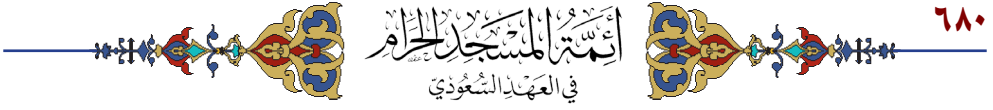 ٦٨٠
أَئِمَّةُ المَسْجِدِ الحَرَامِ
في العَهْدِ السُّعُودِيّ